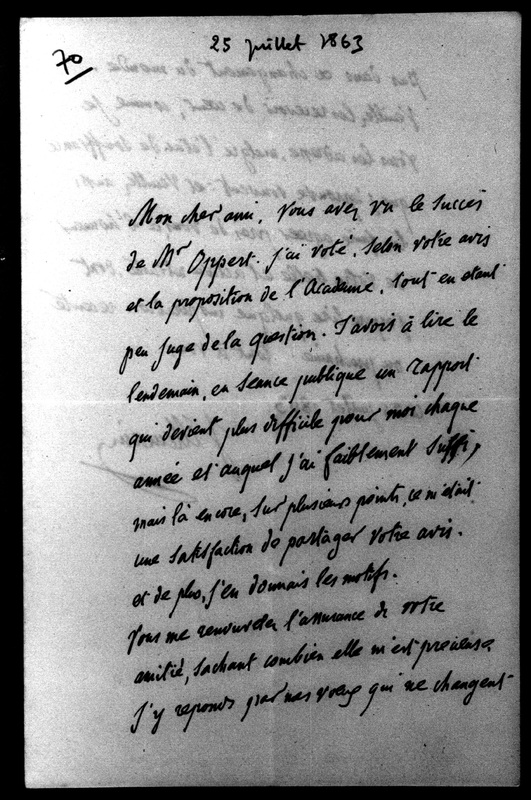 25 juillet 1863
70
Mon cher ami, vous avez vu le succès
de Mr Oppert. j'ai voté, selon votre avis
et la proposition de l'Academie, tout en etant
peu juge de la question. J'avois à lire le
lendemain, en seance publique un rapport
qui devient plus difficile pour moi chaque
année et auquel j'ai faiblement suffi,
mais là encore, sur plusieurs points, ce m'etait
une satisfaction de partager votre avis.
et de plus, j'en donnais les motifs.
Vous me renouvelez l'assurance de votre
amitié, sachant combien elle m'est precieuse.
J'y reponds par mes voeux qui ne changent